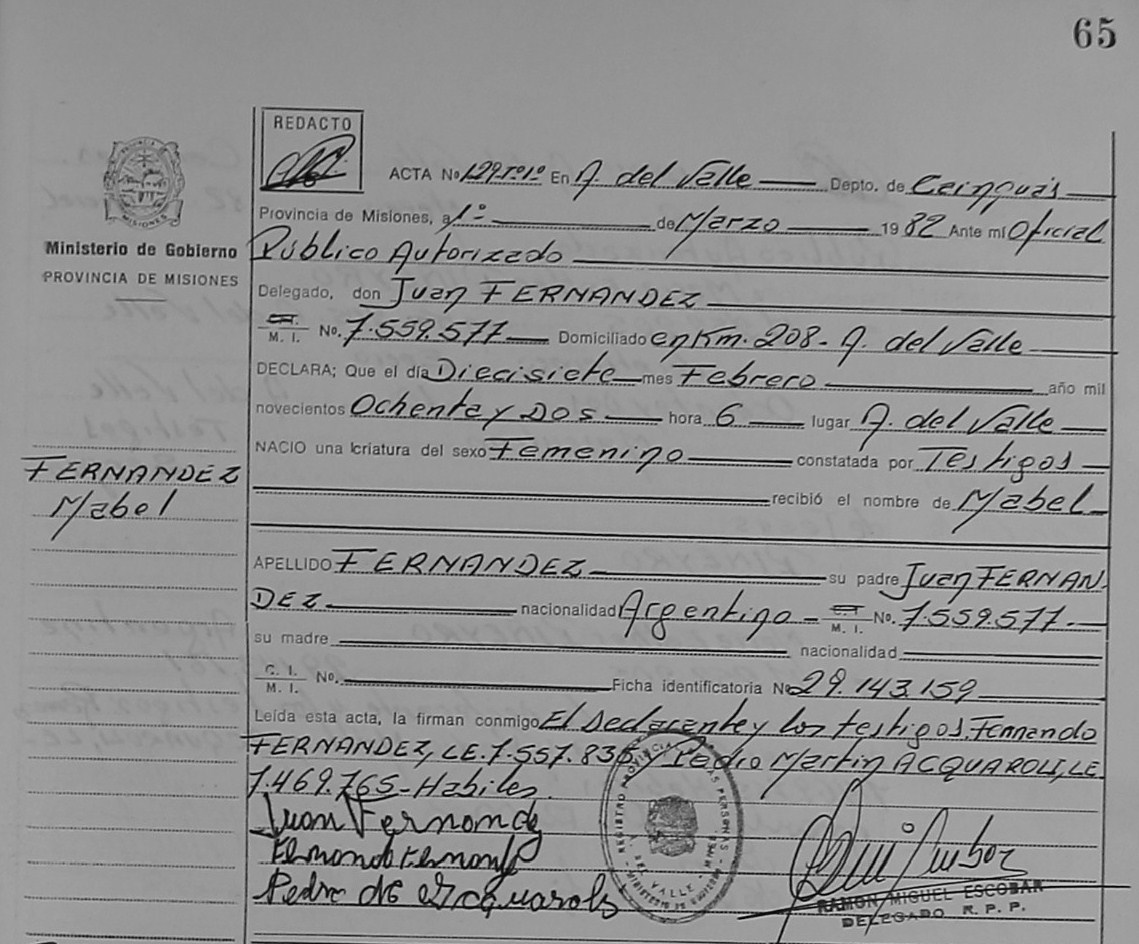 65
REDACTO
ACTA No 129 Tº 1º En A. del Valle Depto. de Cainguás
Provincia de Misiones, a 1º de Marzo 1982 Ante mí Oficial
Público Autorizado
Ministerio de Gobierno
PROVINCIA DE MISIONES
Delegado, don Juan FERNANDEZ
C. I. M. I. No. 7.559.577 Domiciliado en Km. 208 - A. del Valle
DECLARA; Que el día Diecisiete mes Febrero año mil
novecientos Ochenta y Dos hora 6 lugar A. del Valle
NACIO una criatura del sexo Femenino constatada por Testigos
FERNANDEZ
Mabel
recibió el nombre de Mabel
APELLIDO FERNANDEZ su padre Juan FERNAN
DEZ nacionalidad Argentino C. I. M. I. No. 7.559.577.
su madre nacionalidad
C. I. M. I. No. Ficha identificatoria No 29.143.159
Leída esta acta, la firman conmigo El Declarante y los testigos, Fernando
FERNANDEZ, LE. 7.557.835 y Pedro Martin ACQUAROLI, LE.
7.469.765 - Habiles
Juan Fernandez
Fernando Fernandez
Pedro
REGISTRO PROVINCIAL DE LAS PERSONAS
DEL VALLE
MINISTERIO DE GOBIERNO
MISIONES
RAMON MIGUEL ESCOBAR
DELEGADO R. P. P.